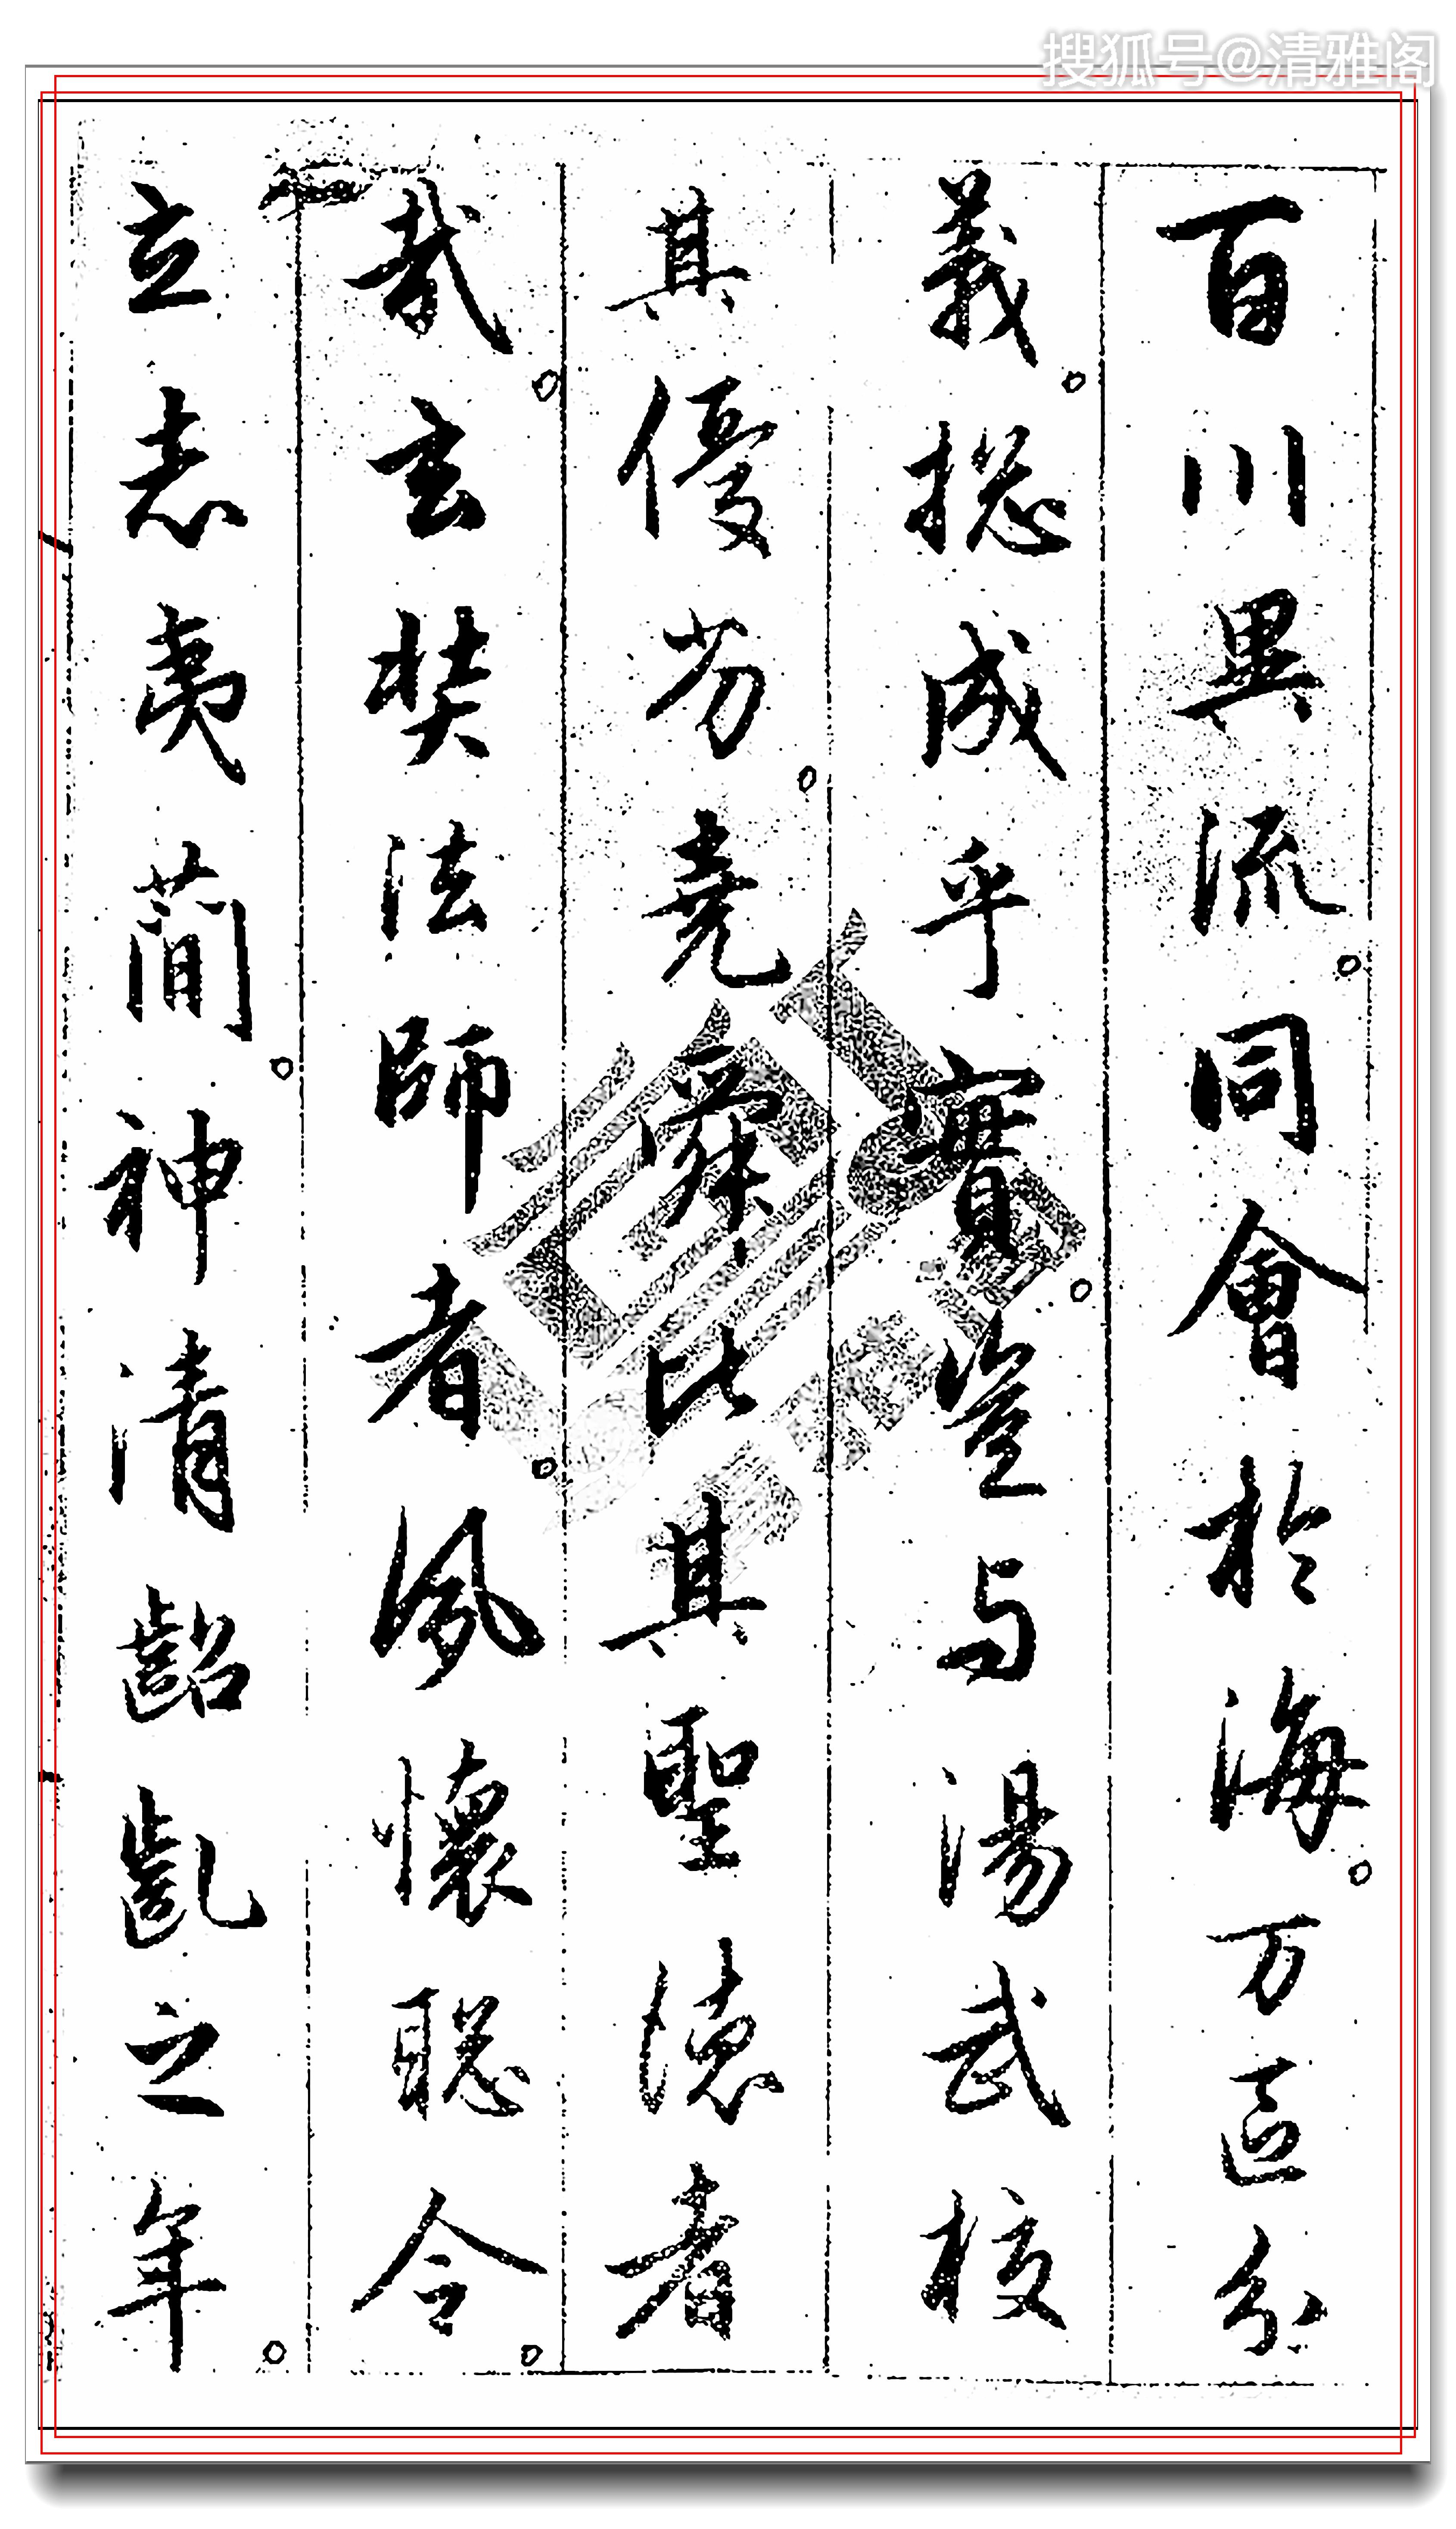 搜狐号@清雅阁
百川異流同會於海万區分
義揔成乎實豈与湯武校
其優劣堯舜比其聖德者
哉玄奘法師者夙懷聡令
立志夷蕳神清齠齓之年